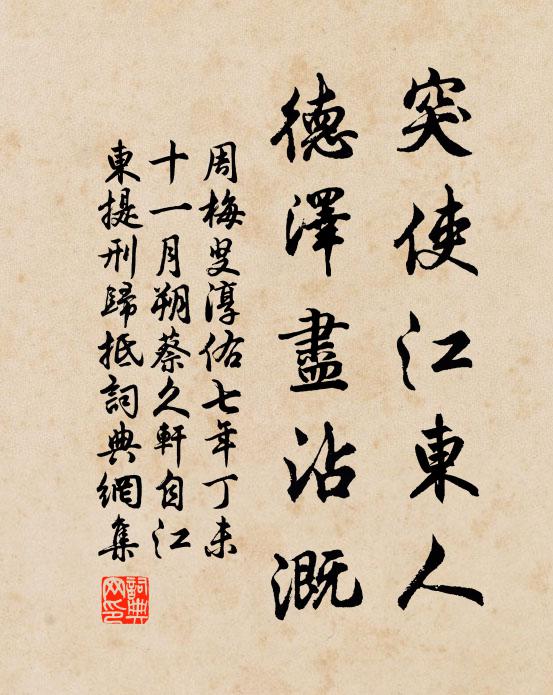 突使江東人
德澤盡沾溉
周梅叟淳佑七年丁未
十一月朔蔡久軒自江
東提刑歸抵詞典網集
詞典网印